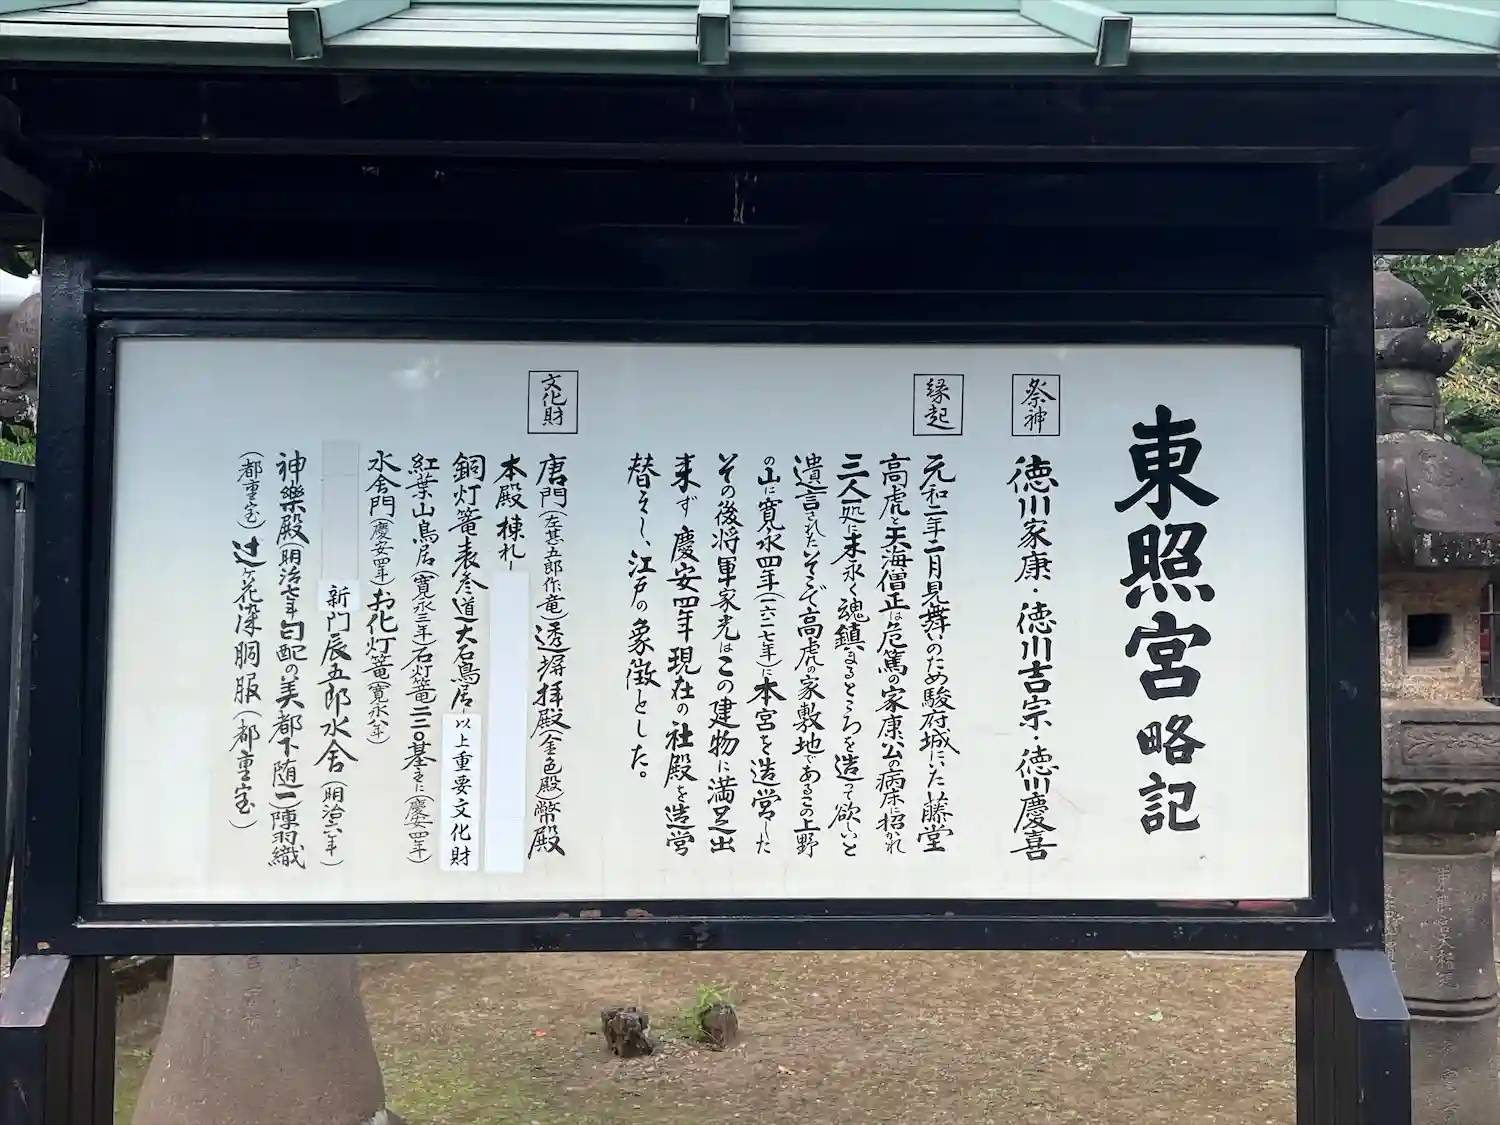 東照宮略記
祭神
徳川家康・徳川吉宗・徳川慶喜
縁起
元和二年二月見舞いのため駿府城にいた藤堂
高虎と天海僧正は危篤の家康公の病床に招かれ
三人一処に末永く魂鎮まるところを造って欲しいと
遺言されたいそこで高虎の家敷地であるこの上野
の山に寛永四年(一六二七年)に本宮を造営した
その後将軍家光はこの建物に満足出
来ず慶安四年現在の社殿を造営
替えし、江戸の象徴とした。
文化財
唐門(左甚五郎作竜)透塀拝殿(金色殿)幣殿
本殿棟札
銅灯篭表参道大石鳥居以上重要文化財
紅葉山鳥居(寛永三年)石灯篭二二〇基(慶安四年)
水舎門(慶安四年)お化灯篭(寛永八年)
新門辰五郎水舎(明治六年)
神樂殿(明治七年)の美都下随一)陣羽織
(都重宝)辻ヶ花染胴服(都重宝)